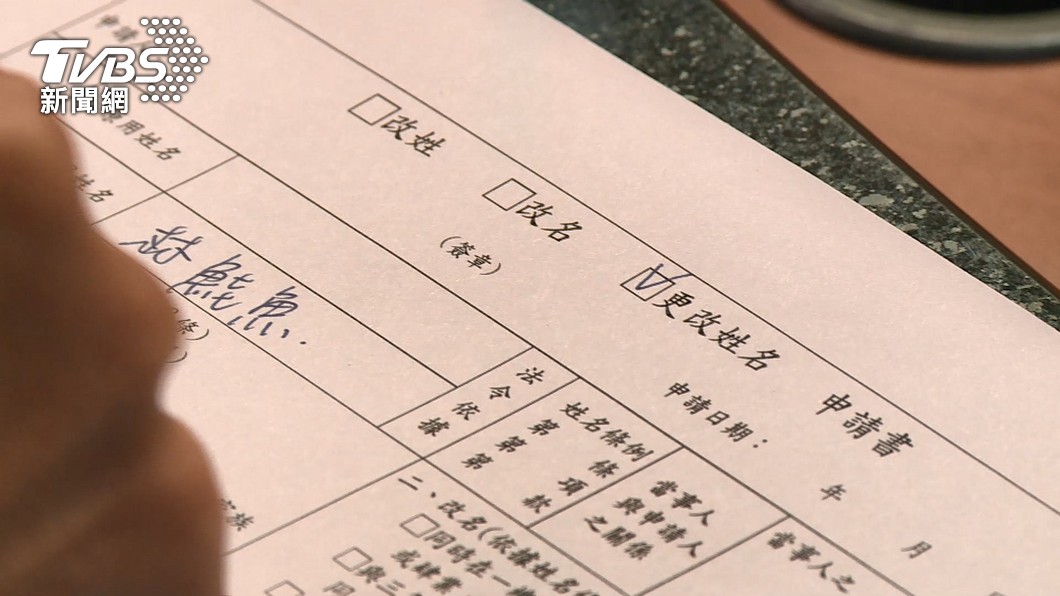 TVBS
新聞網
申請
原用姓名
姓名
□改姓
□改名
☑更改姓名
申請書
(簽章)
申請日期：
年
月
林鮭魚
條)
法令依據
姓名條例
第 條
第 項
第 款
當事人
與申請人
之關係
當事人之
家族
二、改名(依據姓名
□同時在一
或肄業
□與三
同